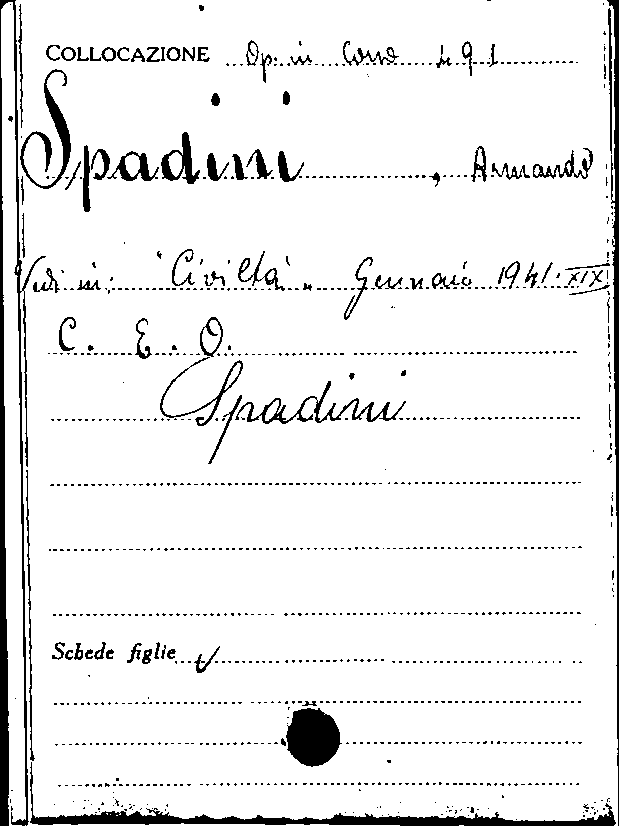 COLLOCAZIONE Op. in Corso 491
Spadini, Armando
Vedi in: "Civiltà" Gennaio 1941-XIX
C. E. O.
Spadini
Schede figlie